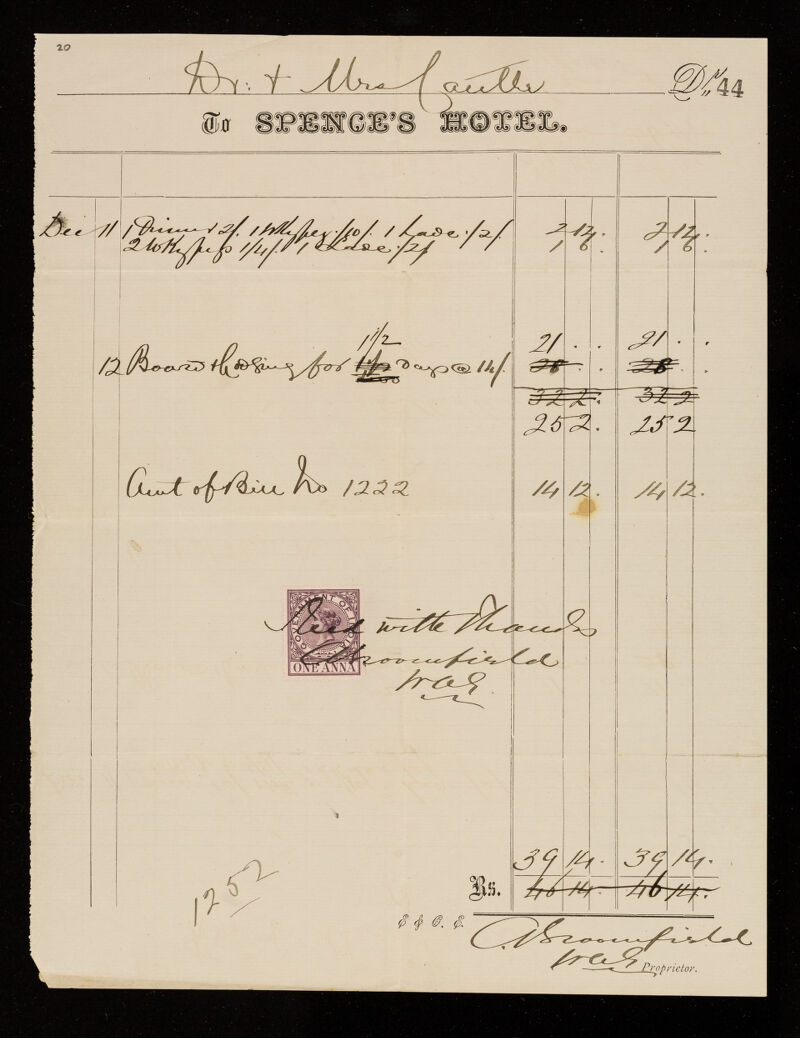 20
Dr. & Mrs Cantlie Dr. 44
To SPENCE'S HOTEL.
Dec 11 1 Dinner 2/. 1 Whypeg /10/. 1 Lade: /2/. 2 12. 2 12.
2 Whypegs 1/4/. 1 Lade: /2/. 1 6. 1 6.
1 1/2 21 . . 21 . .
12 Board & Lodging for days @ 14/. 28 . . 28 . .
32 2. 32 2
25 2. 25 2
Amt of Bill No 1222 14 12. 14 12.
GOVERNMENT OF INDIA
Recd with Thanks
ONE ANNA
Broomfield
39 14. 39 14.
Rs. 46 14. 46 14.
1252
E & O. E.
Broomfield
Proprietor.